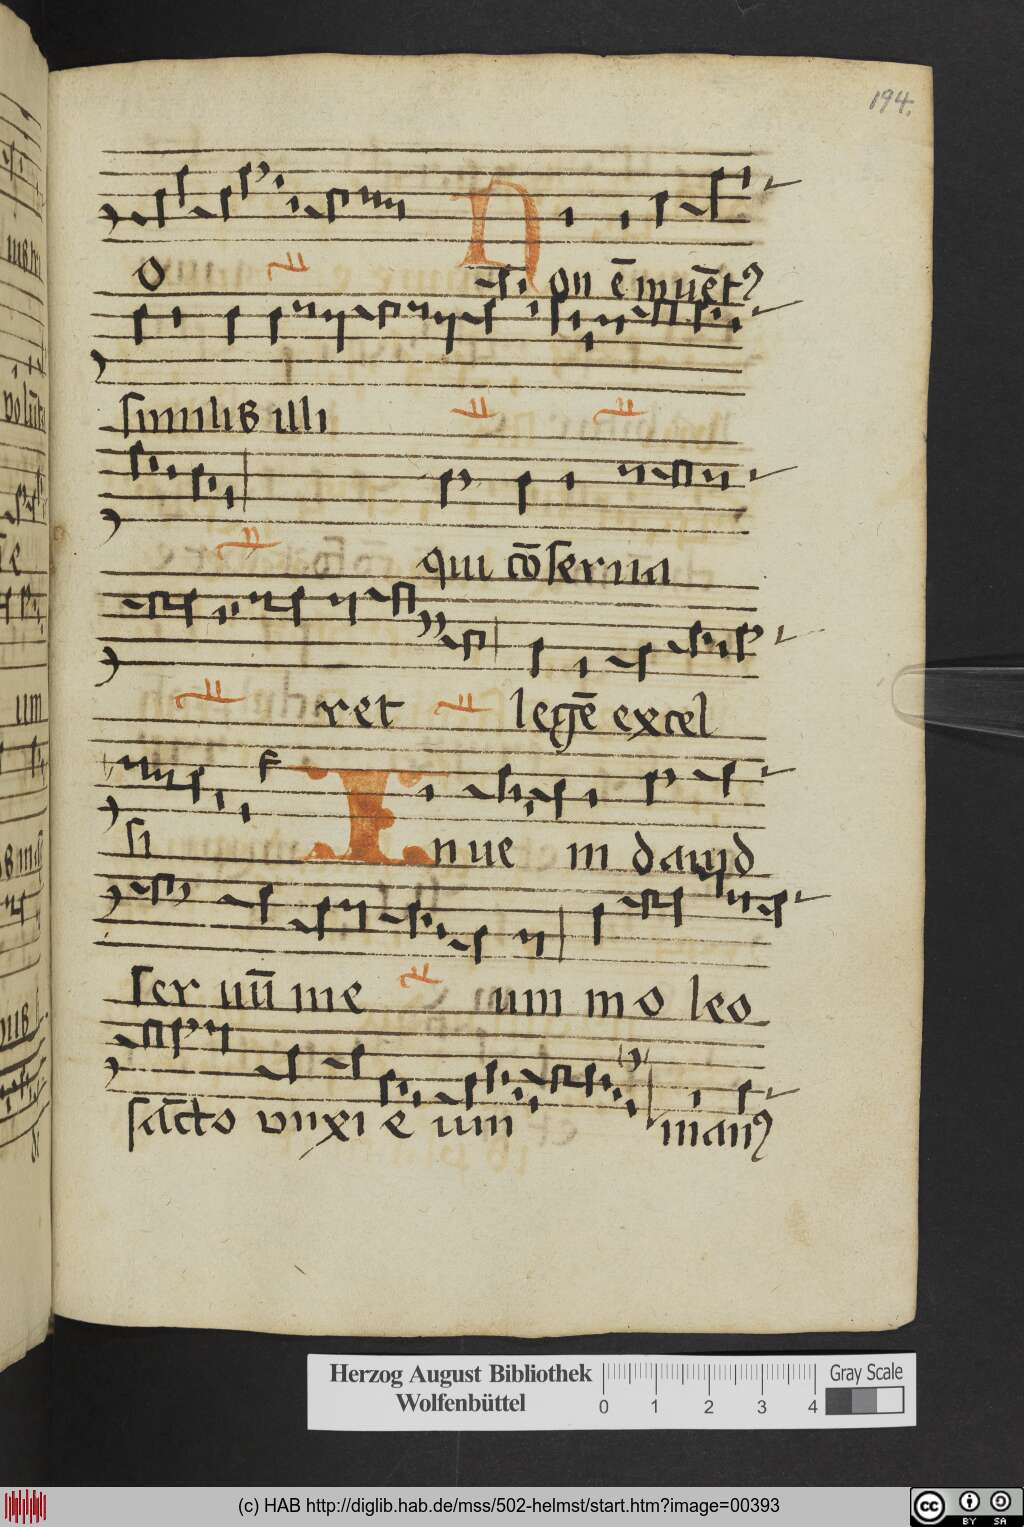 194.
o Non ē inuēt9
similib illi
qui cōserua
ret legē excel
si Inue in dauid
ser uū me um in o leo
sācto vnxi e um man9
Herzog August Bibliothek
Wolfenbüttel
0 1 2 3 4
Gray Scale
(c) HAB http://diglib.hab.de/mss/502-helmst/start.htm?image=00393
cc BY SA